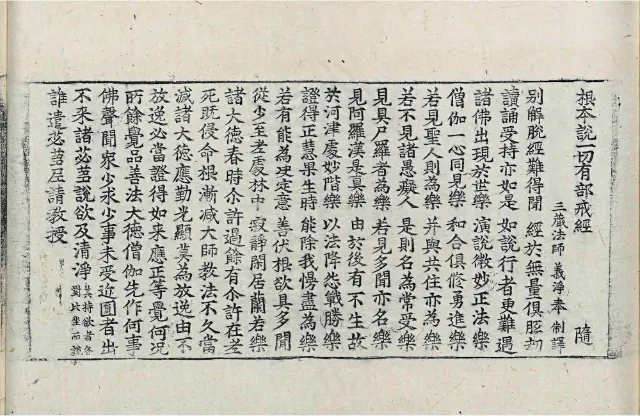 根本說一切有部戒經 隨
三藏法師 義淨奉 制譯
别解脫經難得聞 經於無量俱胝劫
讀誦受持亦如是 如說行者更難遇
諸佛出現於世樂 演說微妙正法樂
僧伽一心同見樂 和合俱修勇進樂
若見聖人則為樂 并與共住亦為樂
若不見諸愚癡人 是則名為常受樂
見具尸羅者為樂 若見多聞亦名樂
見阿羅漢是真樂 由於後有不生故
於河津處妙階樂 以法降怨戰勝樂
證得正慧果生時 能除我慢盡為樂
若有能為决定意 善伏根欲具多聞
從少至老處林中 寂靜閑居蘭若樂
諸大德春時尒許過餘有尒許在老
死既侵命根漸减大師教法不久當
滅諸大德應勤光顯莫為放逸由不
放逸必當證得如来應正等覺何况
所餘覺品善法大德僧伽先作何事
佛聲聞衆少求少事未受近圓者出
不来諸苾芻說欲及清淨 其持欲者各
對比坐而說
誰遣苾芻尼請教授